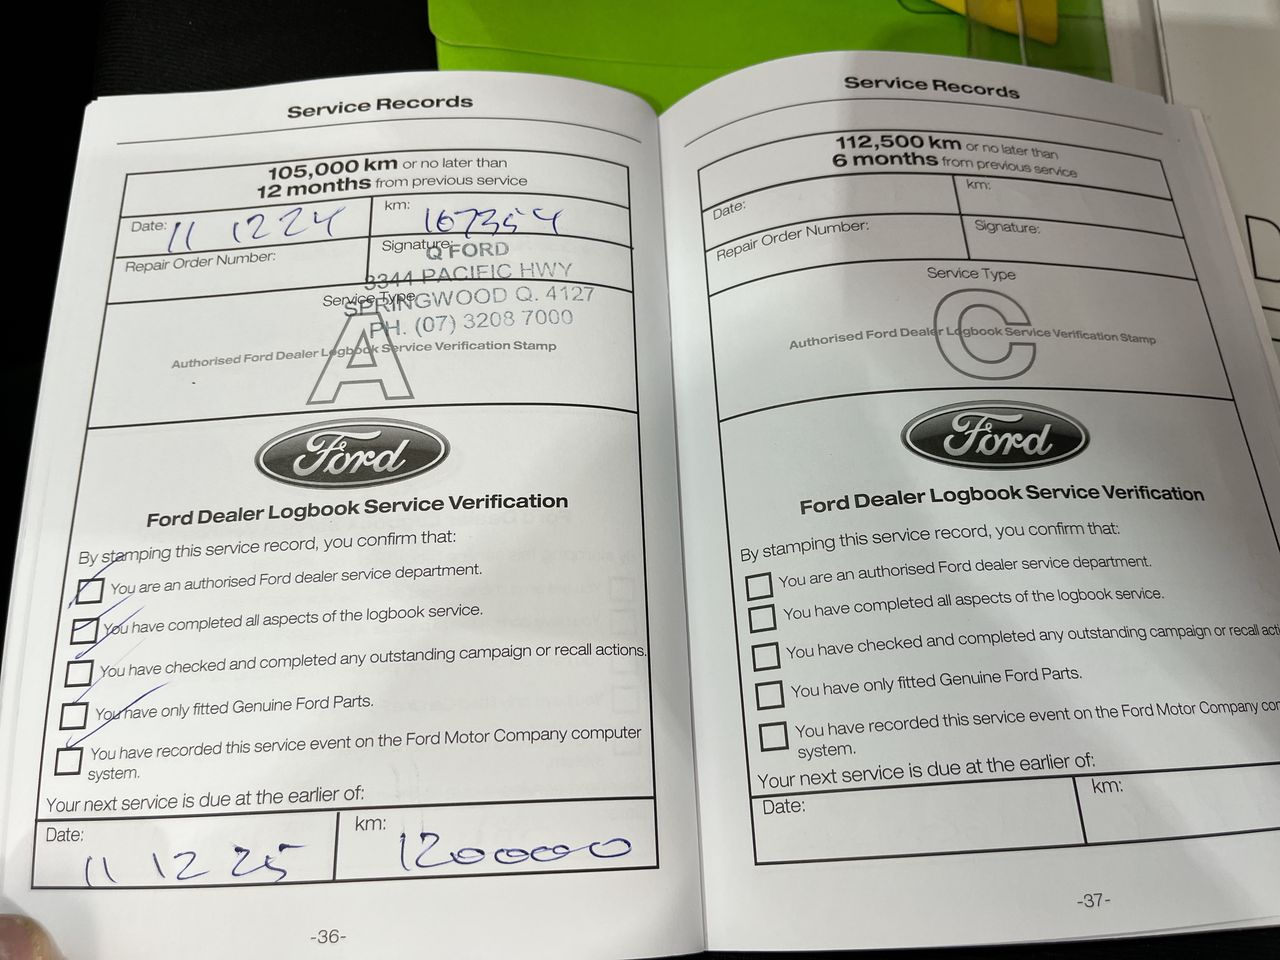 Service Records
105,000 km or no later than
12 months from previous service
Date: 11 12 24
km: 107354
Repair Order Number:
Signature:
Q FORD
3344 PACIFIC HWY
Service Type
SPRINGWOOD Q. 4127
PH. (07) 3208 7000
A
Authorised Ford Dealer Logbook Service Verification Stamp
Ford
Ford Dealer Logbook Service Verification
By stamping this service record, you confirm that:
You are an authorised Ford dealer service department.
You have completed all aspects of the logbook service.
You have checked and completed any outstanding campaign or recall actions.
You have only fitted Genuine Ford Parts.
You have recorded this service event on the Ford Motor Company computer
system.
Your next service is due at the earlier of:
Date: 11 12 25
km: 120000
-36-
Service Records
112,500 km or no later than
6 months from previous service
Date:
km:
Repair Order Number:
Signature:
Service Type
C
Authorised Ford Dealer Logbook Service Verification Stamp
Ford
Ford Dealer Logbook Service Verification
By stamping this service record, you confirm that:
You are an authorised Ford dealer service department.
You have completed all aspects of the logbook service.
You have checked and completed any outstanding campaign or recall acti
You have only fitted Genuine Ford Parts.
You have recorded this service event on the Ford Motor Company co
system.
Your next service is due at the earlier of:
Date:
km:
-37-